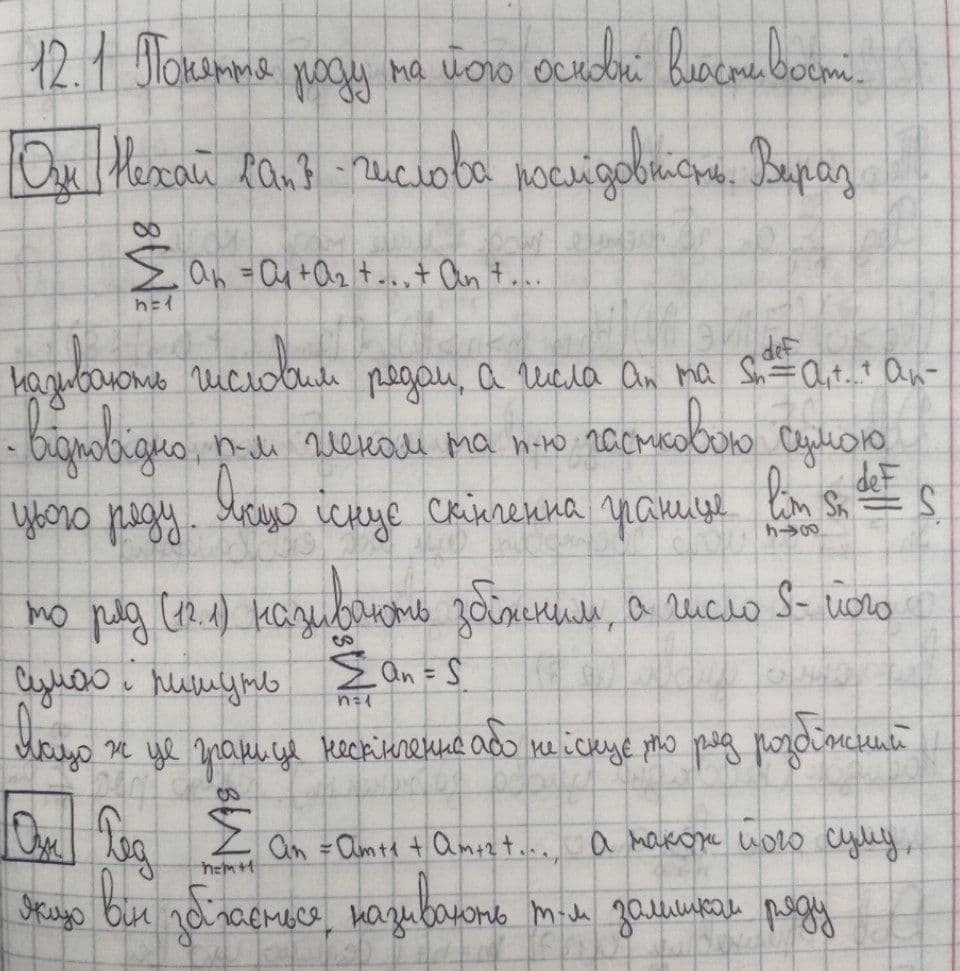 12.1 Поняття ряду та його основні властивості.
Озн Нехай {an} - числова послідовність. Вираз
∞
∑ an = a1 + a2 + ... + an + ...
n=1
називають числовим рядом, а числа an та Sn def= a1+...+ an -
- відповідно, n-м членом та n-ю частковою сумою
цього ряду. Якщо існує скінченна границе lim n→∞ Sn def= S.
то ряд (12.1) називають збіжним, а число S - його
сумою і пишуть ∞∑n=1 an = S.
Якщо ж це границе нескінченне або не існує, то ряд розбіжний
Озн Ряд ∞∑n=m+1 an = am+1 + am+2 + ..., а також його суму,
якщо він збігається, називають m-м залишком ряду